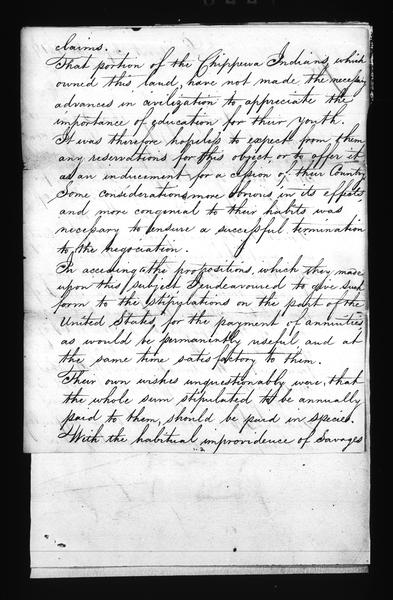 claims.
That portion of the Chippewa Indians, which
owned this land, have not made the necessary
advances in civilization to appreciate the
importance of education for their youth.
It was therefore hopeless to expect from them
any reservations for this object, or to offer it
as an inducement for a cession of their Country
Some considerations more obvious in its effects
and more congenial to their habits was
necessary to ensure a successful termination
to the negociation.
In acceeding to the propositions, which they made
upon this subject I endeavoured to give such
form to the stipulations on the part of the
United States, for the payment of annuities
as would be permanently useful, and at
the same time satisfactory to them.
Their own wishes unquestionably were, that
the whole sum stipulated to be annually
paid to them, should be paid in specie.
With the habitual improvidence of Savages